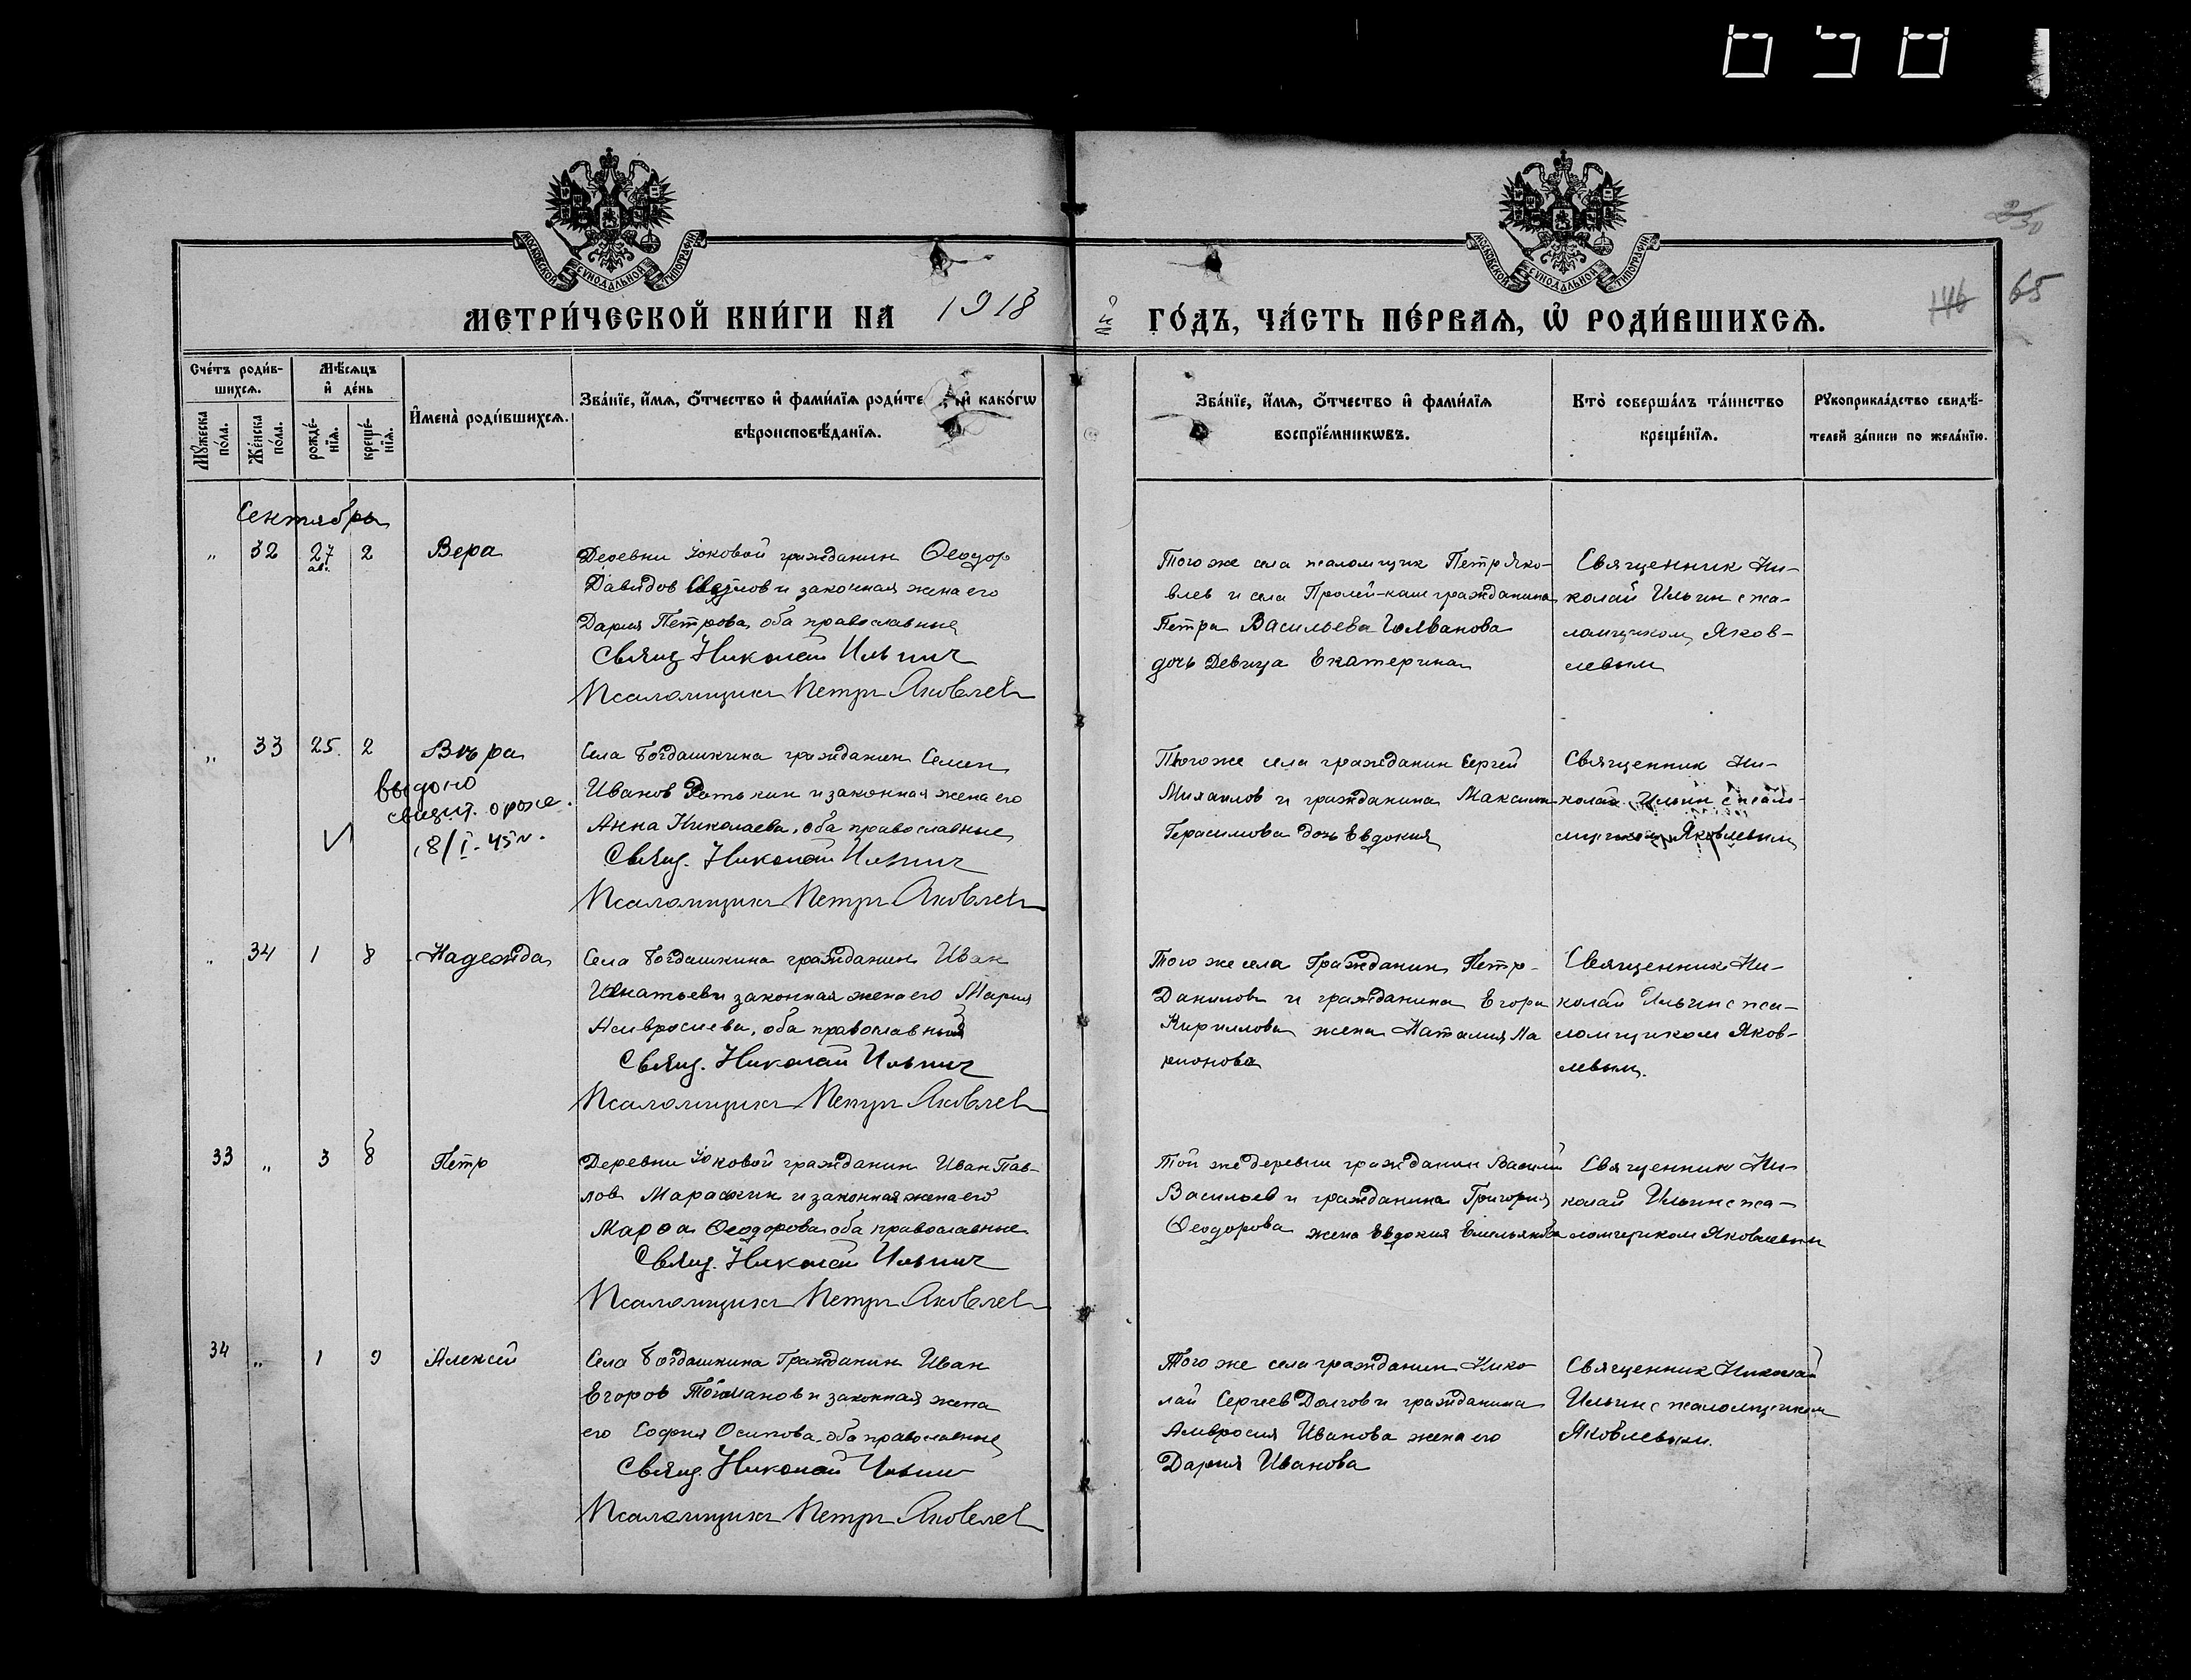 МОСКОВСКОЙ СУНОДАЛЬНОЙ ТИПОГРАФІИ
МОСКОВСКОЙ СУНОДАЛЬНОЙ ТИПОГРАФІИ
146 65
МЕТРИ́ЧЕСКОЙ КНИ́ГИ НА 1918 й ГО́ДЪ, ЧА́СТЬ ПЕ́РВАѦ, Ѡ҆ РОДИ́ВШИХСѦ.
Сче́тъ роди́в-
шихсѧ.
Мѣ́сѧцъ
и҆ де́нь
Мꙋ́жеска по́ла.
Же́нска по́ла.
рожде́-нїѧ.
креще́-нїѧ.
И҆мена̀ роди́вшихсѧ.
Зва́нїе, и҆́мѧ, ѻ҆́тчество и҆ фами́лїѧ роди́те и҆ како́гѡ
вѣроисповѣ́данїѧ.
Зва́нїе, и҆́мѧ, ѻ҆́тчество и҆ фами́лїѧ
воспрїе́мникѡвъ.
Кто̀ соверша́лъ та́инство
креще́нїѧ.
Рꙋкоприкла́дство свидѣ́-
телей за́писи по жела́нїю.
Сентябрь
„ 32 27 2 Вера
ав.
Деревни Юковой гражданин Ѳеодор
Давидов и законная жена его
Дария Петрова, оба православные
Свящ. Николай Ильин
Псаломщикъ Петръ Яковлев
Того же села псаломщик Петр Яко-
влев и села Пролей-каши гражданина
Петра Васильева
дочь девица Екатерина
Священник Ни-
колай Ильин с пса-
ломщиком Яков-
левым
„ 33 25. 2 Вѣра
выдано
свидет. о рожд.
18/I-45 г.
Села Богдашкина гражданин Семен
Иванов и законная жена его
Анна Николаева, оба православные
Свящ. Николай Ильин
Псаломщикъ Петръ Яковлев
Того же села гражданин Сергей
Михаилов и гражданина Максима
Герасимова дочь Евдокия
Священник Ни-
колай Ильин с псало-
мщиком Яковлевым
„ 34 1 8 Надежда
Села Богдашкина гражданин Иван
Игнатьев и законная жена его Мария
Амвросиева, оба православные
Свящ. Николай Ильин
Псаломщикъ Петръ Яковлев
Того же села Гражданин Петр
Данилов и гражданина Егора
Кириллова жена Наталия Ла
рионова
Священник Ни-
колай Ильин с пса-
ломщиком Яков-
левым.
33 „ 3 8 Петр
Деревни Юковой гражданин Иван Пав-
лов и законная жена его
Марѳа Ѳеодорова оба православные
Свящ. Николай Ильин
Псаломщикъ Петръ Яковлев
Той же деревни гражданин Василий
Васильев и гражданина Григория
Ѳеодорова жена Евдокия Емельянова
Священник Ни-
колай Ильин с пса-
ломщиком Яковлевым
34 „ 1 9 Алексей
Села Богдашкина Гражданин Иван
Егоров и законная жена
его София Осипова, оба православные
Свящ. Николай Ильин
Псаломщикъ Петръ Яковлев
Того же села гражданин Нико
лай Сергеев Долгов и гражданина
Амвросия Иванова жена его
Дария Иванова
Священник Николай
Ильин с псаломщиком
Яковлевым.